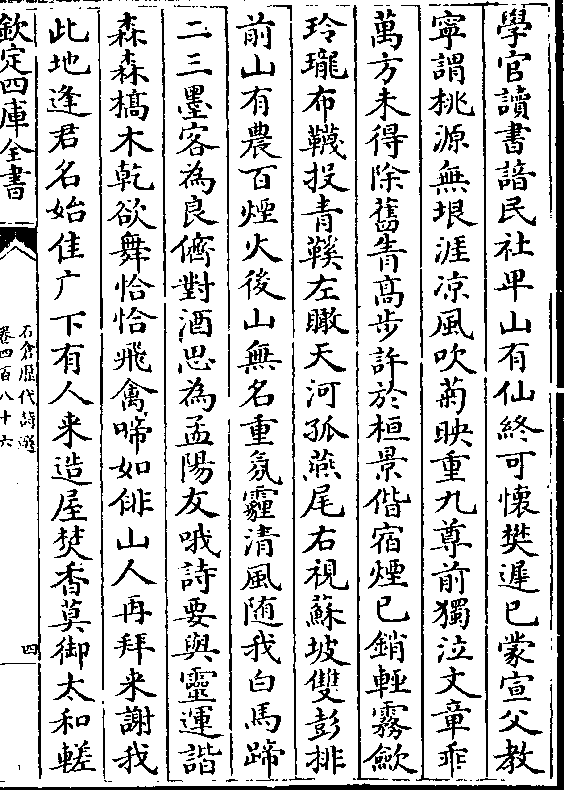 學官讀書諳民社卑山有仙終可懷樊遲已蒙宣父教
寧謂桃源無垠涯凉風吹菊映重九尊前獨泣文章乖
萬方未得除舊眚高步許於桓景偕宿煙已銷輕霧歛
玲瓏布韈投青鞵左瞰天河孤燕尾右視蘇坡雙彭排
前山有農百煙火後山無名重氛霾清風随我白馬蹄
二三墨客為良儕對酒思為孟陽友哦詩要與靈運諧
森森槁木乾欲舞恰恰飛禽啼如俳山人再拜来謝我
此地逢君名始佳广下有人来造屋焚香莫御太和鞋
欽定四庫全書
石倉歷代詩選
卷四百八十六
四